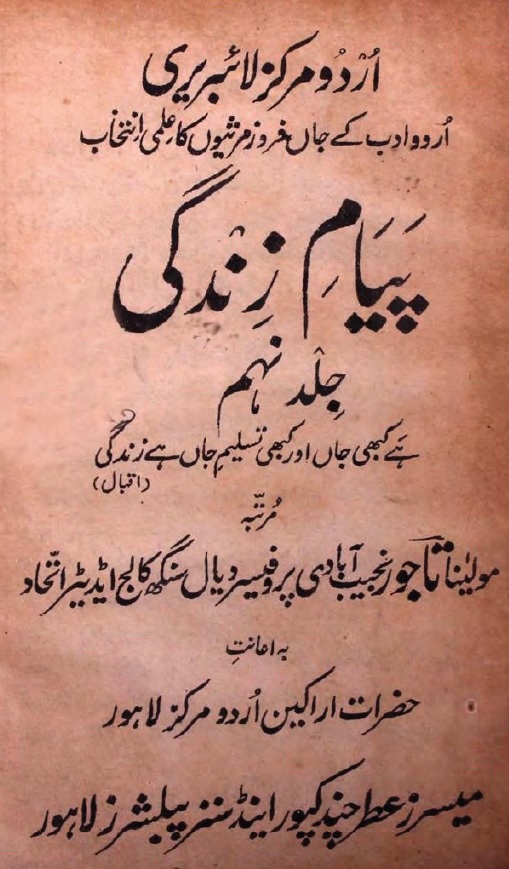 اُردُو مرکز لائبریری
اُردو ادب کے جاں فروز مرثیوں کا علمی انتخاب
پَیَامِ زِندگی
جِلد نہم
ہَے کبھی جاں اور کبھی تسلیمِ جاں ہے زندگی
(اقبال)
مُرتّبہ
مولیٰنا تاجور نجیب آبادی پروفیسر دیال سنگھ کالج ایڈیٹر اتّحاد
بہ اعانتِ
حضرات اراکین اُردو مرکز لاہور
میسرز عطر چند کپور اینڈ سنز پبلشرز لاہور